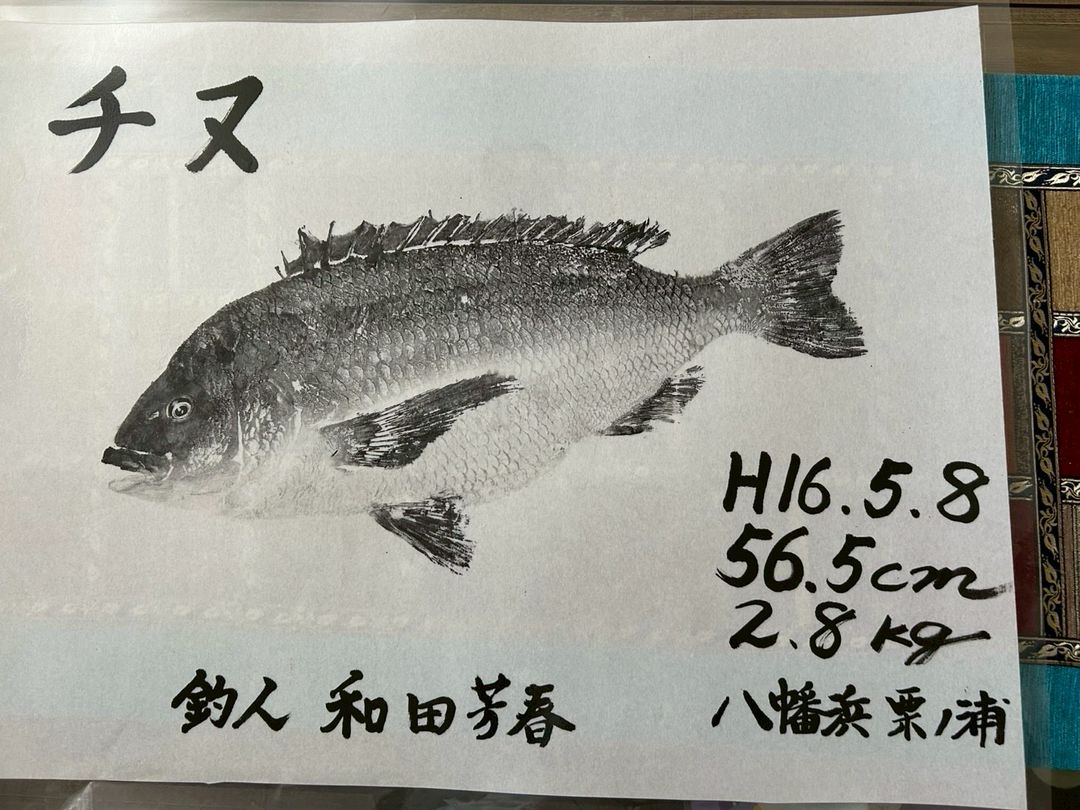 チヌ
H16.5.8
56.5cm
2.8kg
釣人 和田芳春
八幡浜 粟ノ浦